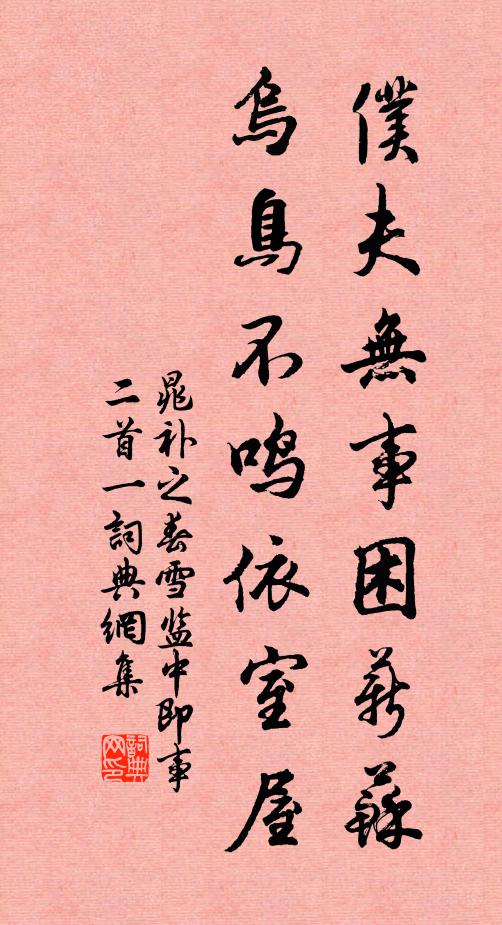 僕夫無事困薪蘇
烏鳥不鸣依室屋
晁补之春雪监中即事
二首一詞典網集
詞典网印